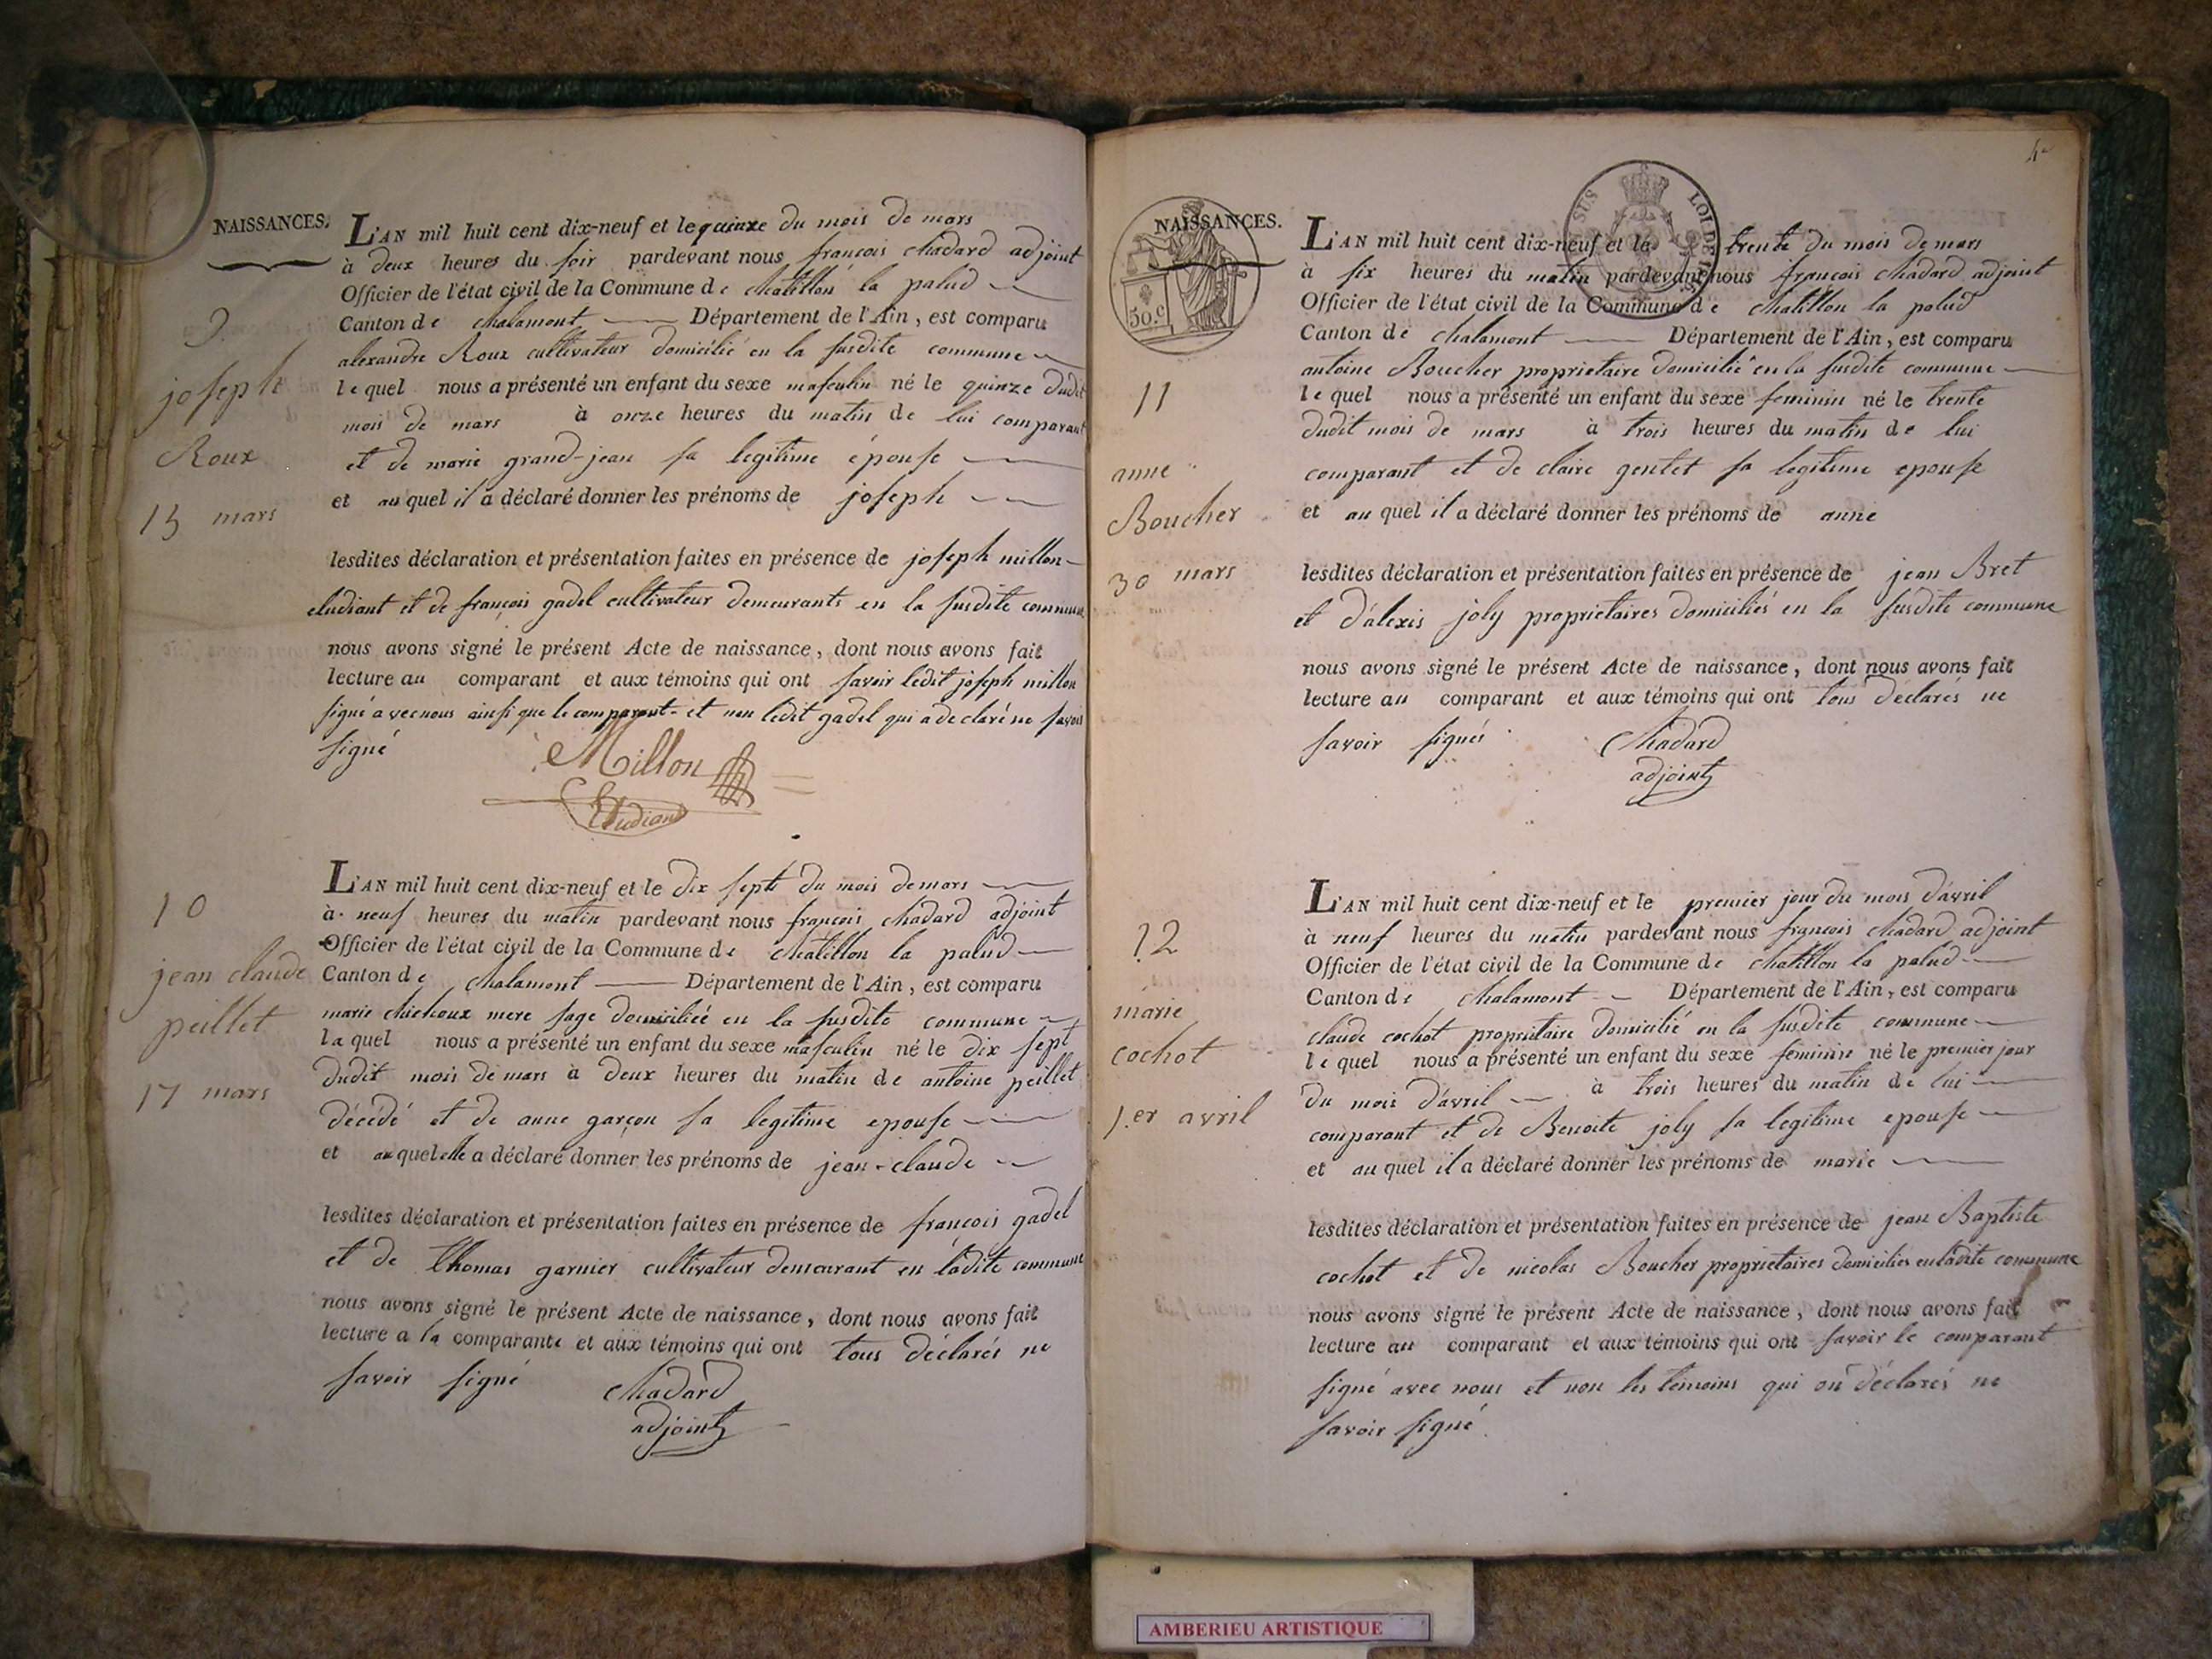 NAISSANCES.
9.
joseph
Roux
15 mars
L'AN mil huit cent dix-neuf et le quinze du mois de mars
à deux heures du soir pardevant nous françois chadard adjoint
Officier de l'état civil de la Commune de chatillon la palud
Canton de chalamont Département de l'Ain, est comparu
alexandre Roux cultivateur domicilié en la susdite commune
lequel nous a présenté un enfant du sexe masculin né le quinze dudit
mois de mars à onze heures du matin de lui comparant
et de marie grand-jean sa legitime épouse
et auquel il a déclaré donner les prénoms de joseph
lesdites déclaration et présentation faites en présence de joseph millon
etudiant et de françois gadel cultivateur demeurants en la susdite commune
nous avons signé le présent Acte de naissance, dont nous avons fait
lecture au comparant et aux témoins qui ont savoir ledit joseph millon
signé avec nous ainsi que le comparant et non ledit gadel qui a declaré ne savoir
signé
Millon
Etudiant
10
jean claude
peillet
17 mars
L'AN mil huit cent dix-neuf et le dix sept du mois de mars
à neuf heures du matin pardevant nous françois chadard adjoint
Officier de l'état civil de la Commune de chatillon la palud
Canton de chalamont Département de l'Ain, est comparu
marie chichoux mere sage domiciliée en la susdite commune
laquel nous a présenté un enfant du sexe masculin né le dix sept
dudit mois de mars à deux heures du matin de antoine peillet
décédé et de anne garçon sa legitime epouse
et auquel elle a déclaré donner les prénoms de jean-claude
lesdites déclaration et présentation faites en présence de françois gadel
et de thomas garnier cultivateur demeurant en ladite commune
nous avons signé le présent Acte de naissance, dont nous avons fait
lecture a la comparante et aux témoins qui ont tous déclarés ne
savoir signé
chadard
adjoint
4e
NAISSANCES.
50.c
SUS LOI DE
11
anne
Boucher
30 mars
L'AN mil huit cent dix-neuf et le trente du mois de mars
à six heures du matin pardevant nous françois chadard adjoint
Officier de l'état civil de la Commune de chatillon la palud
Canton de chalamont Département de l'Ain, est comparu
antoine Boucher proprietaire domicilié en la susdite commune
lequel nous a présenté un enfant du sexe feminin né le trente
dudit mois de mars à trois heures du matin de lui
comparant et de claire gentet sa legitime epouse
et au quel il a déclaré donner les prénoms de anne
lesdites déclaration et présentation faites en présence de jean Bret
et d'alexis joly proprietaires domiciliés en la susdite commune
nous avons signé le présent Acte de naissance, dont nous avons fait
lecture au comparant et aux témoins qui ont tous déclarés ne
savoir signés
chadard
adjoint
12
marie
cochot
1.er avril
L'AN mil huit cent dix-neuf et le premier jour du mois d'avril
à neuf heures du matin pardevant nous françois chadard adjoint
Officier de l'état civil de la Commune de chatillon la palud
Canton de chalamont Département de l'Ain, est comparu
claude cochot proprietaire domicilié en la susdite commune
lequel nous a présenté un enfant du sexe feminin né le premier jour
du mois d'avril à trois heures du matin de lui
comparant et de Benoite joly sa legitime epouse
et au quel il a déclaré donner les prénoms de marie
lesdites déclaration et présentation faites en présence de jean Baptiste
cochot et de nicolas Boucher proprietaires domiciliés en ladite commune
nous avons signé le présent Acte de naissance, dont nous avons fait
lecture au comparant et aux témoins qui ont savoir le comparant
signé avec nous et non les témoins qui on déclarés ne
savoir signé
AMBERIEU ARTISTIQUE